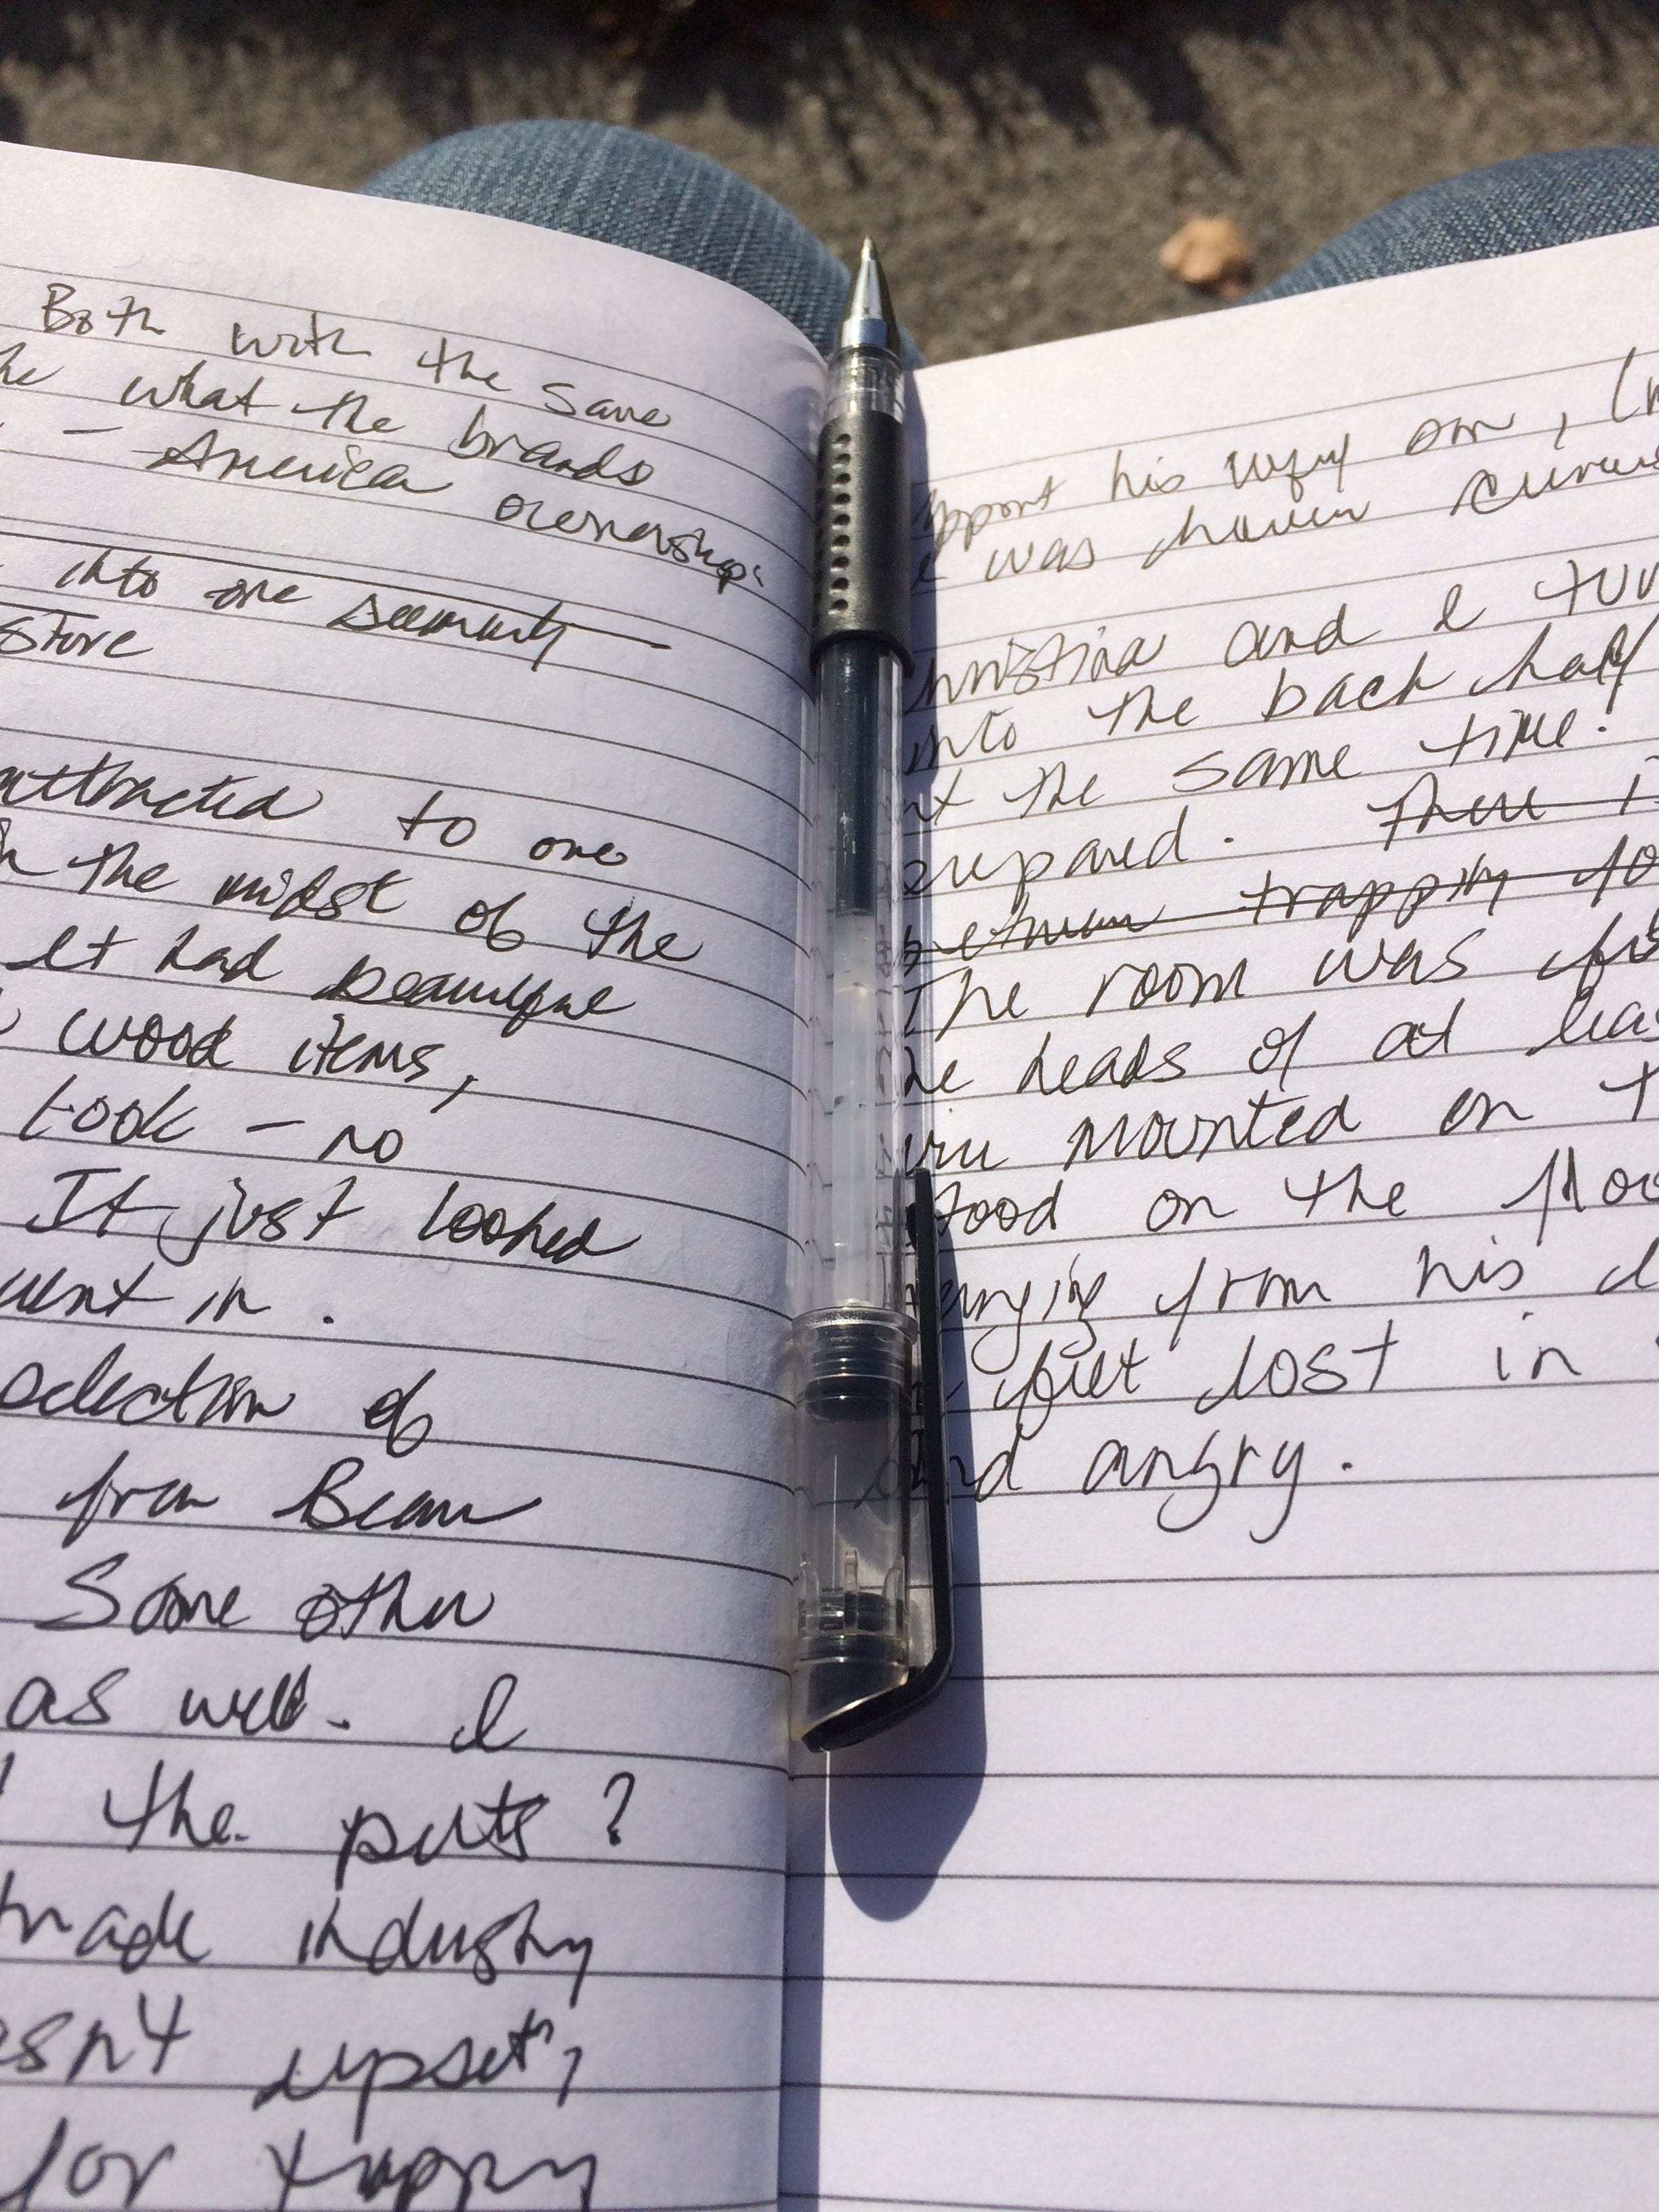 Both with the same
he what the brands
- America ownership.
into one seemingly
store
attracted to one
the midst of the
It had beautiful
wood items,
took - no
It just looked
went in.
selection of
from Bean
Some other
as well. I
the pelts?
trade industry
asn't upset,
for trappy
pport his wify
was haven
hristina and I
into the back half
at the same time.
prepared. There
between trapping
The room was
he heads of at
mounted on
stood on the
from his
felt lost in
and angry.